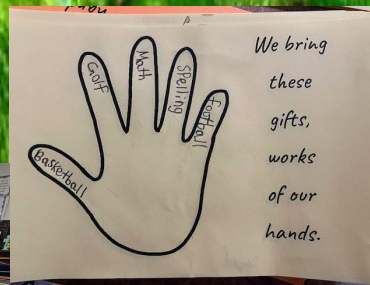 Basketball
Golf
Math
Spelling
Football
We bring
these
gifts,
works
of our
hands.